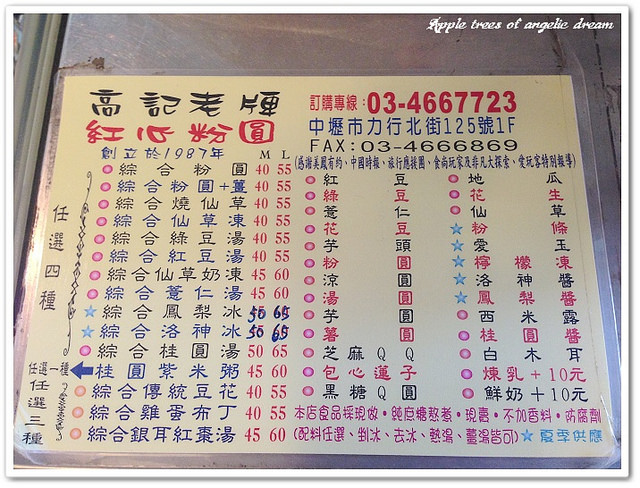 Apple trees of angelic dream
高記老牌
紅心粉圓
創立於1987年
訂購專線：03-4667723
中壢市力行北街125號1F
FAX：03-4666869
(感謝美鳳有約、中國時報、旅行應援團、食尚玩家及非凡大探索、愛玩客特別報導)
M L
任選四種
綜合粉圓 40 55
綜合粉圓+薑 40 55
綜合燒仙草 40 55
綜合仙草凍 40 55
綜合綠豆湯 40 55
綜合紅豆湯 40 55
綜合仙草奶凍 45 60
綜合薏仁湯 45 60
☆綜合鳳梨冰 50 65
☆綜合洛神冰 50 65
綜合桂圓湯 50 65
任選一種
桂圓紫米粥 45 60
任選三種
綜合傳統豆花 40 55
綜合雞蛋布丁 40 55
綜合銀耳紅棗湯 45 60
紅豆
綠豆
薏仁
花豆
芋頭
粉圓
涼圓
湯圓
芋圓
薯圓
芝麻QQ
包心蓮子
黑糖QQ
地瓜
花生
仙草
☆粉條
☆愛玉
☆檸檬凍
☆洛神醬
☆鳳梨醬
西米露
桂圓醬
白木耳
煉乳+10元
鮮奶+10元
本店食品採現做•純庶糖熬煮•現賣•不加香料•防腐劑
(配料任選、剉冰、去冰、熱湯、薑湯皆可)☆夏季供應